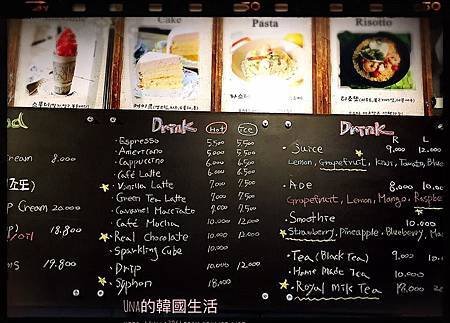 Cake
Pasta
Risotto
Drink
Hot
Ice
Espresso 5,500 5,500
Americano 5,500 5,500
Cappuccino 6,000 6,500
Café Latte 6,000 6,500
Vanilla Latte 7,000 7,500
Green Tea Latte 7,000 7,500
Caramel Macciato 9,000 9,000
Café Mocha 10,000 10,000
Real Chocolate 10,000 12,000
Sparkling Cube 10,000
Drip 10,000 12,000
Syphon 18,000
cream 8,000
p Cream 20,000
18,800
18,000
Drink
R L
Juice 9,000
Lemon, Grapefruit, Kiwi, Tomato, Blue
Ade 8,000 10,00
Grapefruit, Lemon, Mango, Raspbe
Smoothie 10,000
Strawberry, Pineapple, Blueberry, M
Tea (Black Tea) 9,000
Home Made Tea 10,000
Royal Milk Tea 20
UNA的韓國生活